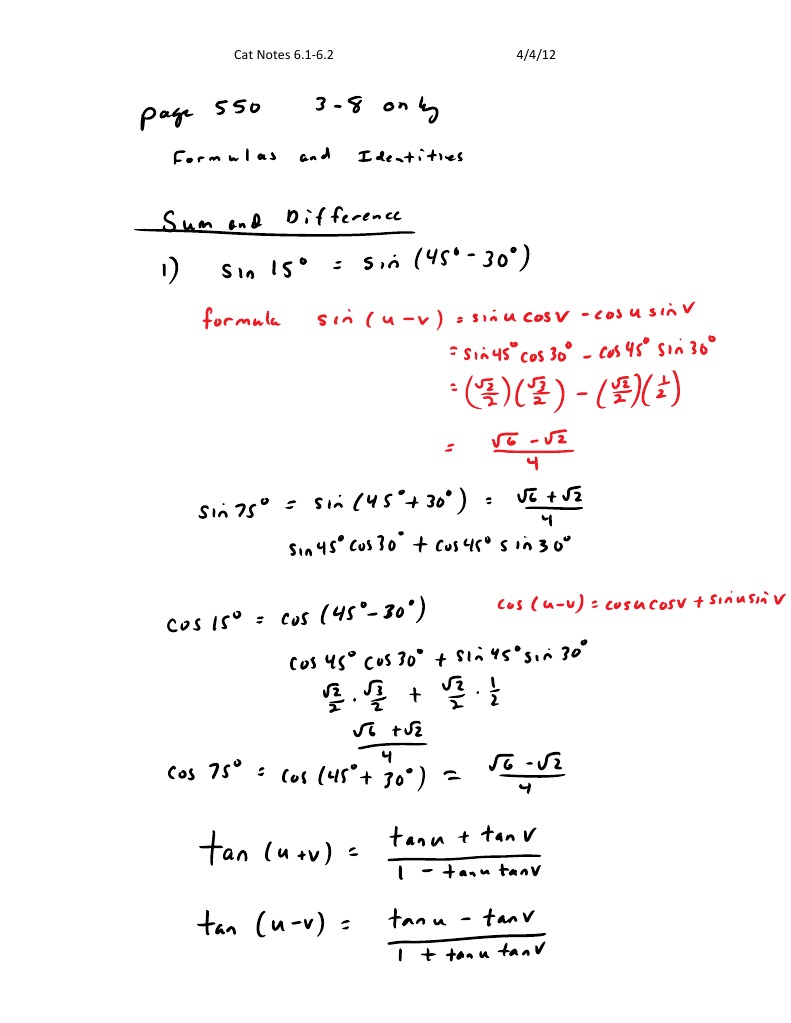 Cat Notes 6.1-6.2 4/4/12
page 550 3-8 only
Formulas and Identities
Sum and Difference
1) sin 15° = sin (45° - 30°)
formula sin (u - v) = sin u cos v - cos u sin v
= sin 45° cos 30° - cos 45° sin 30°
= (√2/2)(√3/2) - (√2/2)(1/2)
= (√6 - √2)/4
sin 75° = sin (45° + 30°) = (√6 + √2)/4
sin 45° cos 30° + cos 45° sin 30°
cos 15° = cos (45° - 30°) cos (u-v) = cos u cos v + sin u sin v
cos 45° cos 30° + sin 45° sin 30°
√2/2 · √3/2 + √2/2 · 1/2
(√6 + √2)/4
cos 75° = cos (45° + 30°) = (√6 - √2)/4
tan (u + v) = (tan u + tan v)/(1 - tan u tan v)
tan (u - v) = (tan u - tan v)/(1 + tan u tan v)